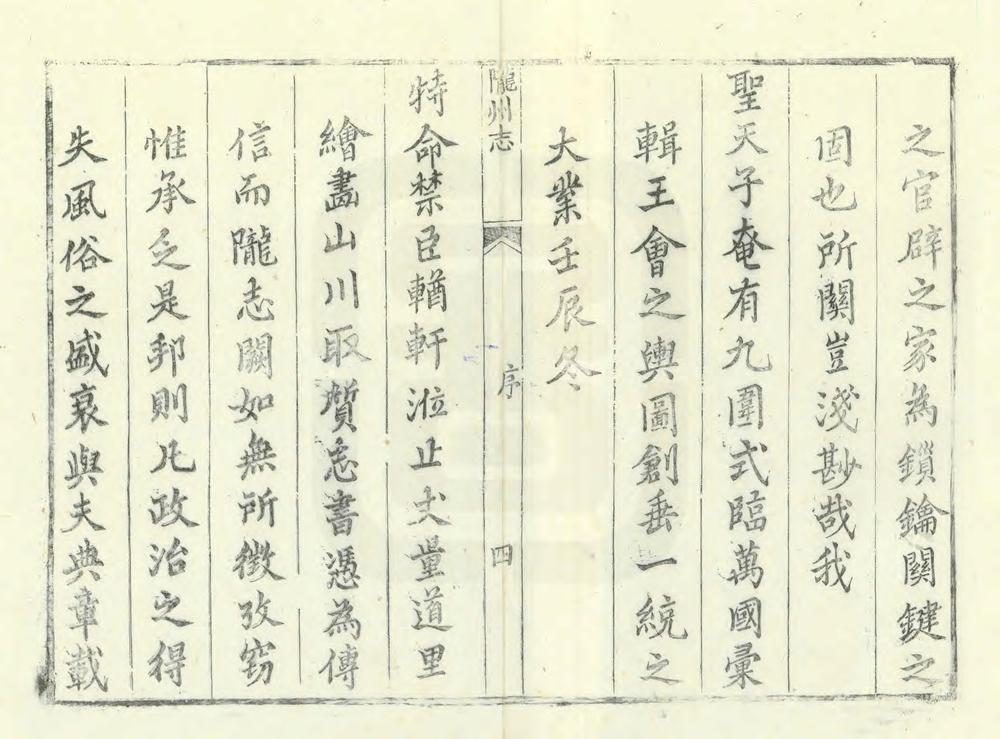 之官辟之家為鎖鑰關鍵之
固也所關豈淺尠哉我
聖天子奄有九圍式臨萬國彙
輯王會之輿圖創垂一統之
大業壬辰冬
隴州志
序
四
特命禁臣輶軒涖止丈量道里
繪畫山川取質志書憑為傳
信而隴志闕如無所徵攷竊
惟承乏是邦則凡政治之得
失風俗之盛衰與夫典章載